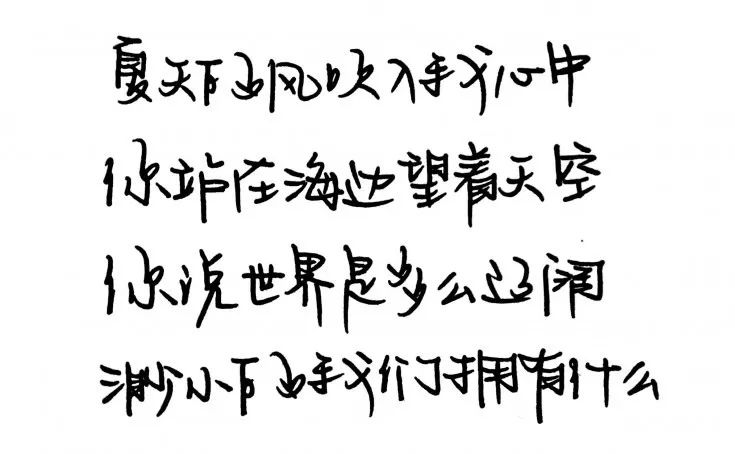 夏天的风吹入我心中
你站在海边望着天空
你说世界是多么辽阔
渺小的我们拥有什么